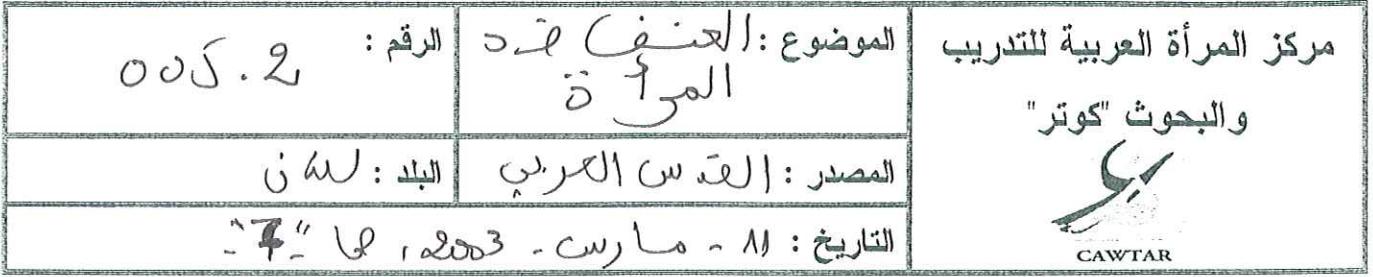 مركز المرأة العربية للتدريب
والبحوث "كوتر"
CAWTAR
الموضوع : العنف ضد
المرأة
الرقم :
المصدر : القدس العربي
البلد : لبنان
التاريخ : 11 - مارس - 2003،